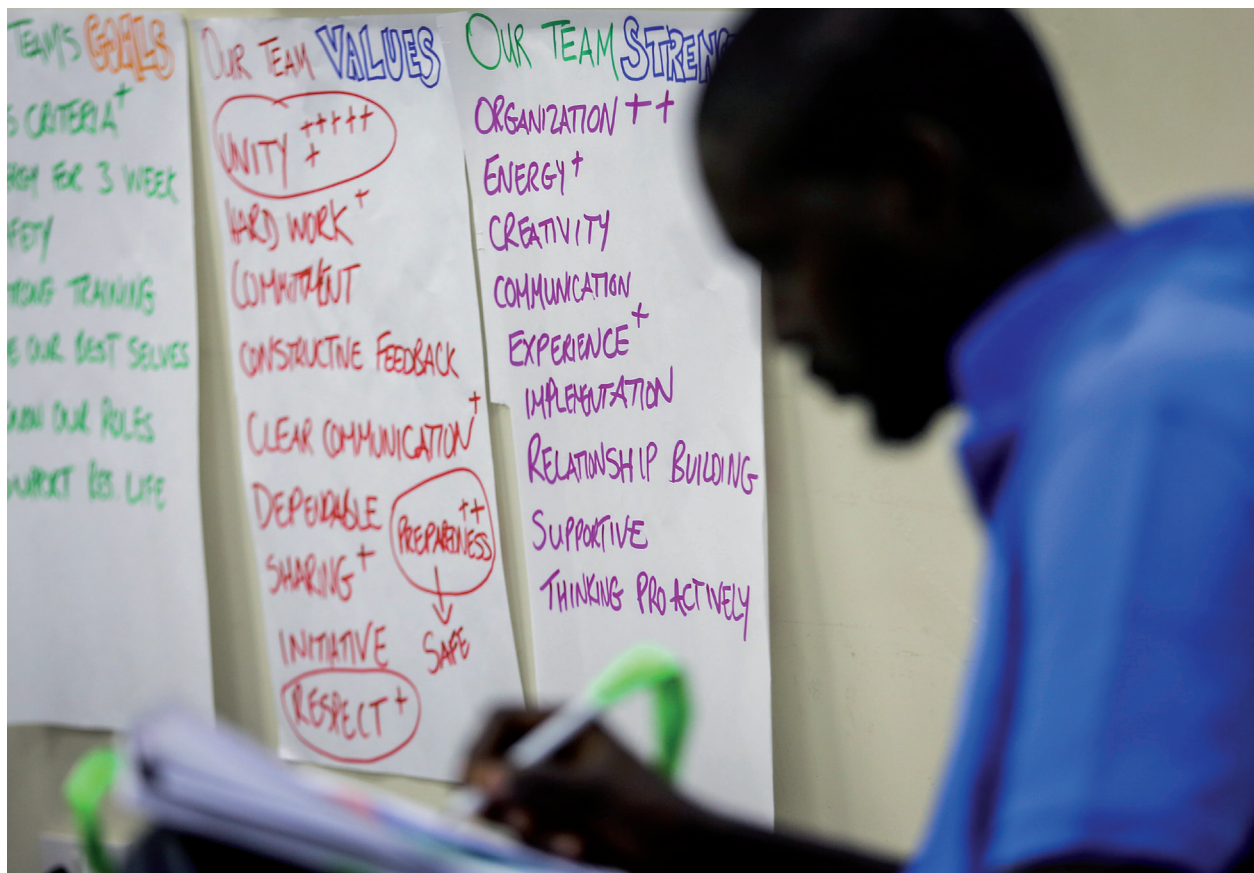 TEAM'S GOALS
CRITERIA+
FOR 3 WEEK
TRAINING
OUR BEST SELVES
OUR ROLES
RES. LIFE
OUR TEAM VALUES
UNITY ++++++
HARD WORK+
COMMITMENT
CONSTRUCTIVE FEEDBACK
CLEAR COMMUNICATION+
DEPENDABLE
PREPAREDNESS++
SHARING+
INITIATIVE
SAFE
RESPECT+
OUR TEAM STREN
ORGANIZATION ++
ENERGY+
CREATIVITY
COMMUNICATION
EXPERIENCE+
IMPLEMENTATION
RELATIONSHIP BUILDING
SUPPORTIVE
THINKING PROACTIVELY